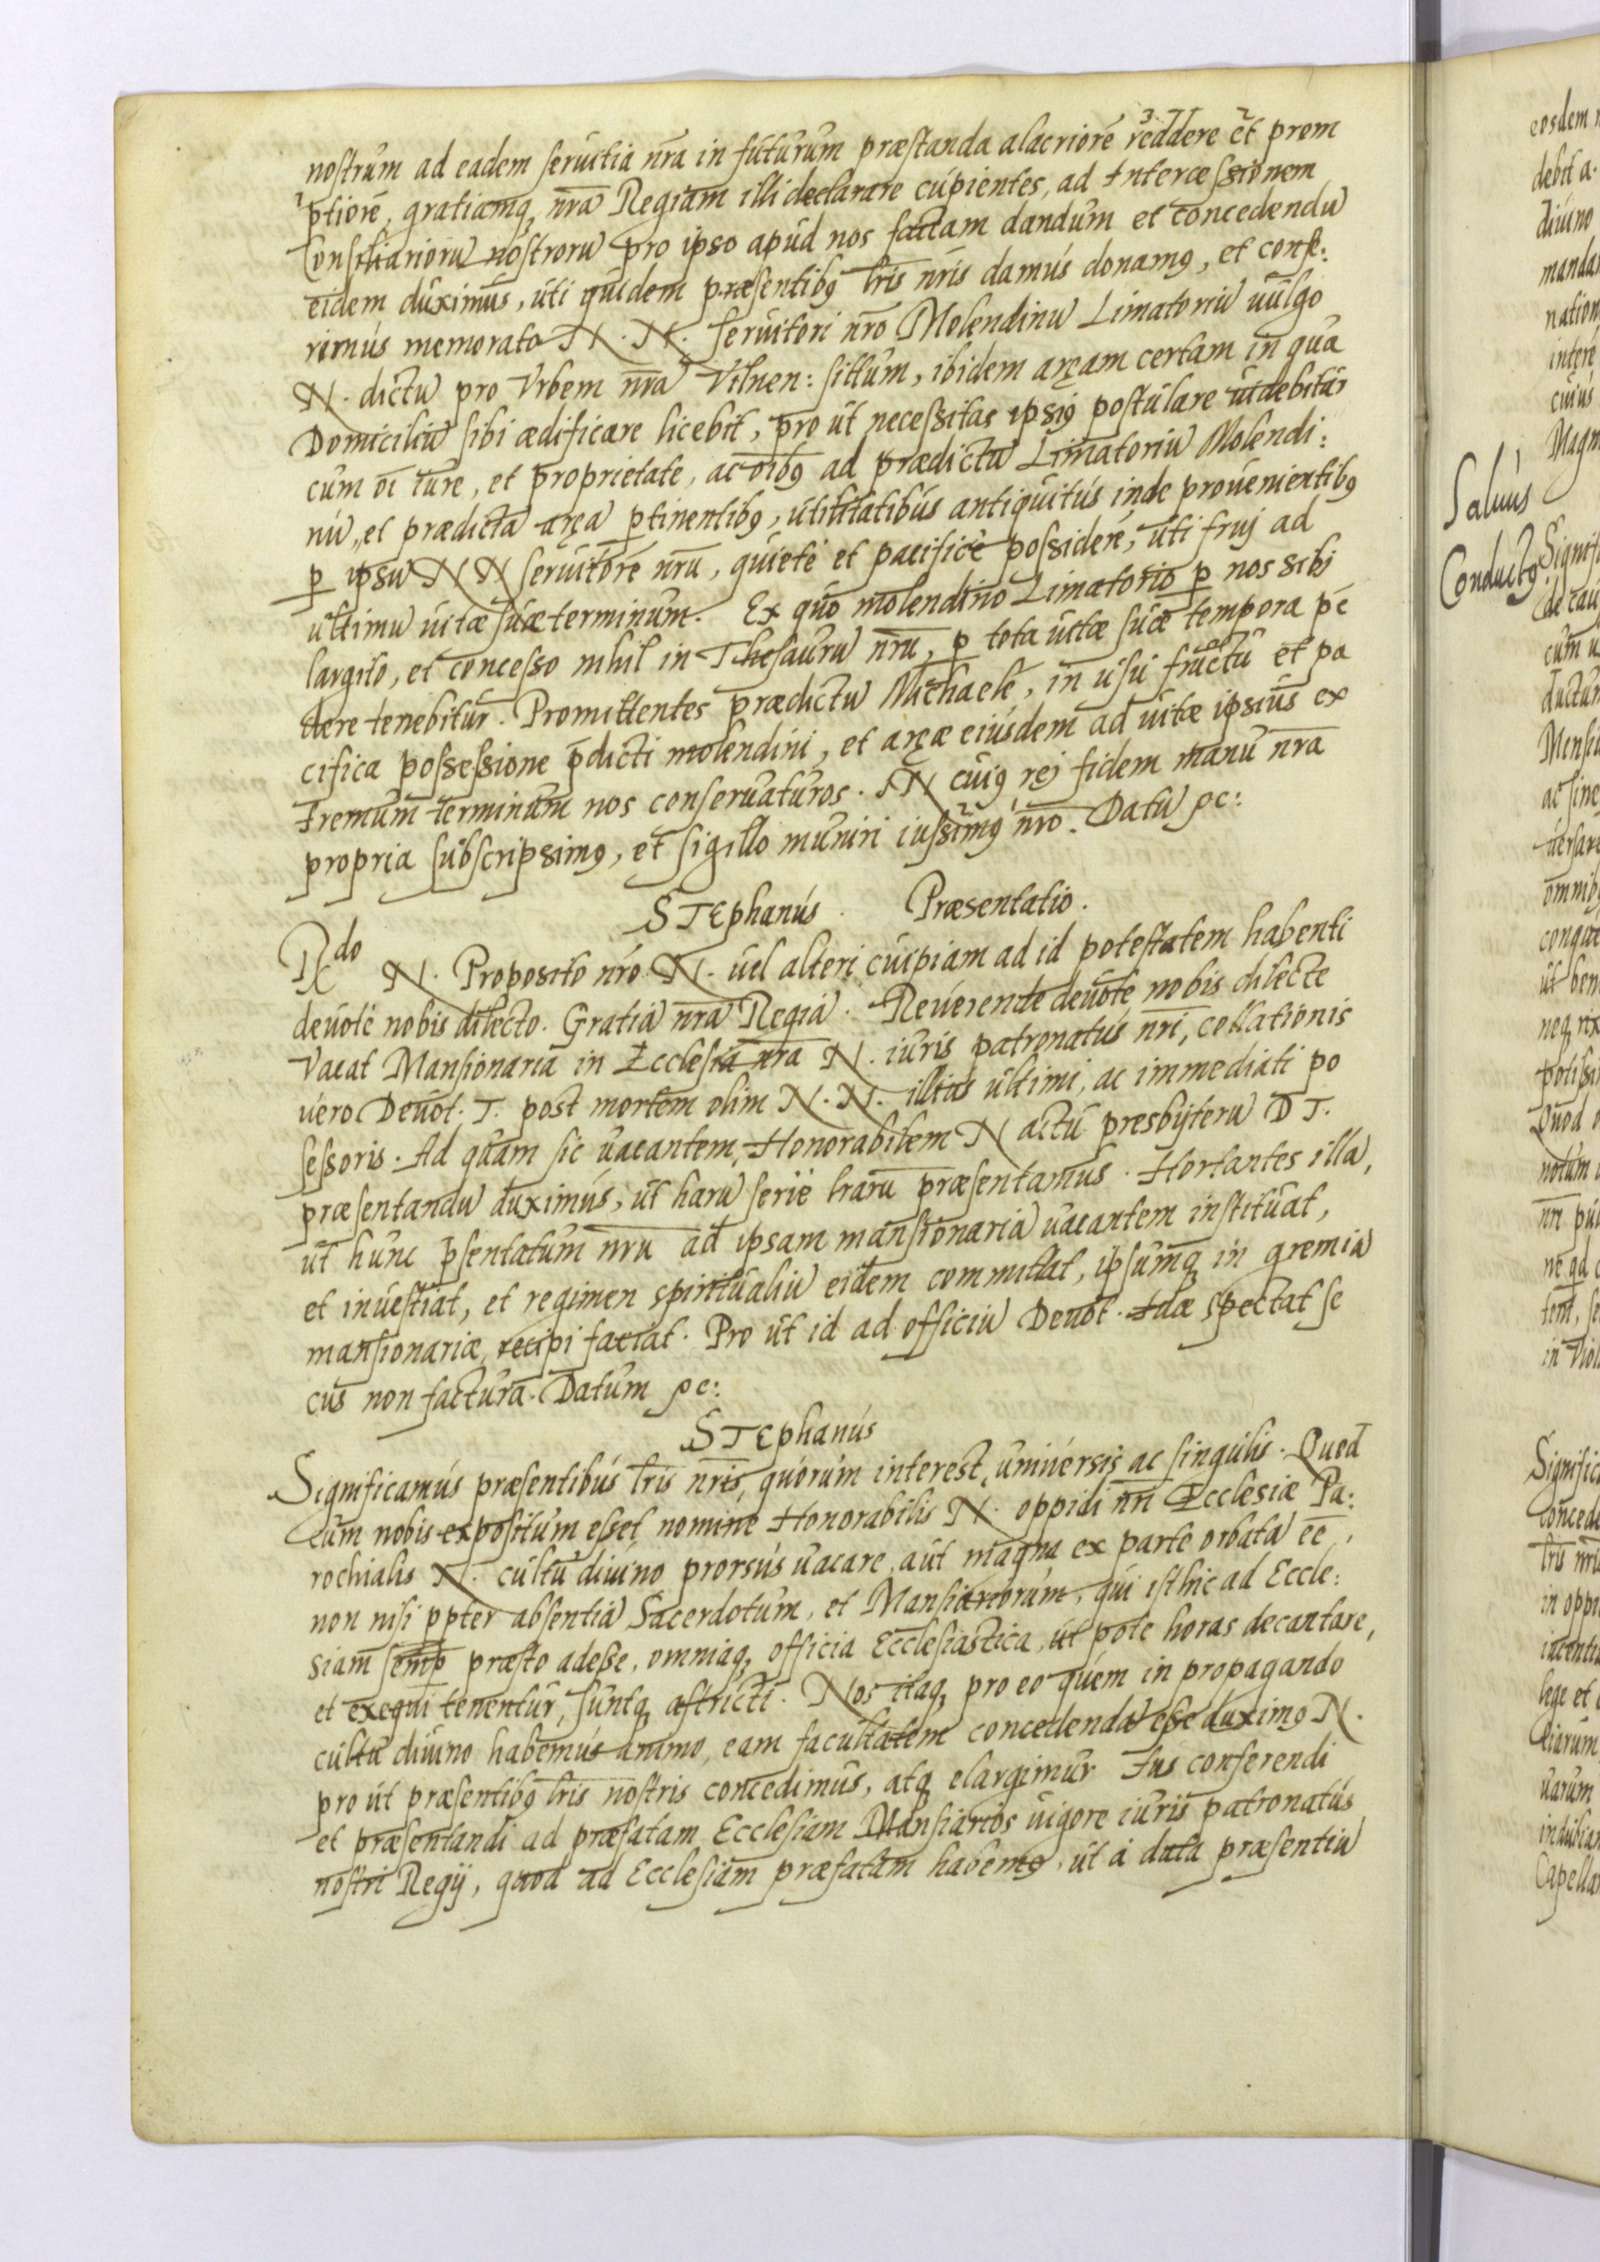 nostrum ad eadem seruitia nr̄a in futurum præstanda alacriorē reddere et prom
ptiorē, gratiamq, nr̄a Regiam illi declarare cupientes, ad Intercæssionem
Consiliarioru nostroru pro ipso apud nos factam dandum et concedendu
eidem duximus, uti quidem præsentibꝫ lr̄is nr̄is damus donamꝫ, et confe:
rimus memorato N. N. seruitori nr̄o Molendinu Limatoriu uulgo
N. dictu pro Vrbem nr̄a Vilnen: situm, ibidem aręam certam in qua
Domiciliu sibi ædificare licebit, pro ut necessitas ipsiꝫ postulare uidebitur
cum oī iure, et proprietate, ac oībꝫ ad prædictu Limatoriu Molendi:
nu, et prædicta aręa ꝑtinentibꝫ, utilitatibus antiquitus inde prouenientibꝫ
ꝑ ipsu N N seruitorē nr̄u, quietè et pacificè possiderè, uti frui ad
ultimu uitæ suæ terminum. Ex quo molendino Limatorio ꝑ nos sibi
largito, et concesso nihil in Thesauru nr̄u, ꝑ tota uitæ suæ tempora pē
dere tenebitur. Promittentes prædictu Michaelē, in usu fructu et pa
cifica possessione p̄dicti molendini, et aręæ eiusdem ad uitæ ipsius ex
tremum terminum nos conseruaturos. IN cuiꝫ rei fidem manu nr̄a
propria subscripsimꝫ, et sigillo muniri iussimꝫ nr̄o. Datu ꝛc:
STEphanus. Præsentatio.
Rdo N. Proposito nr̄o N. uel alteri cuipiam ad id potestatem habenti
deuotè nobis dilecto. Gratia nr̄a Regia. Reuerende deuotè nobis dilecte
Vacat Mansionaria in Ecclesia nr̄a N. iuris patronatus nr̄i, collationis
uero Deuot. T. post mortem olim N. N. illius ultimi, ac immediati po
sessoris. Ad quam sic uacantem, Honorabilem N actu presbyteru D T.
præsentandu duximus, ut haru seriè lr̄aru præsentamus. Hortantes illa,
ut hunc p̄sentatum nr̄u ad ipsam mansionaria uacantem instituat,
et inuestiat, et regimen spiritualiu eidem committat, ipsumq, in gremiu
mansionariæ recipi faciat. Pro ut id ad officiu Deuot. Tuæ spectat se
cus non factura. Datum ꝛc:
STEphanus
Significamus præsentibus lr̄is nr̄is, quorum interest, uniuersis ac singulis. Quod
cum nobis expositum esset nomine Honorabilis N. oppidi nr̄i Ecclesiæ Pa:
rochialis N. cultu diuino prorsus uacare, aut magna ex parte orbata eē,
non nisi ppter absentia Sacerdotum, et Mansiariorum, qui isthic ad Eccle:
siam semꝑ præsto adesse, omniaq, officia Ecclesiastica, ut pote horas decantare,
et exequi tenentur, suntq, astricti. Nos itaq, pro eo quem in propagando
cultu diuino habemus animo, eam facultatem concedenda esse duximꝫ N.
pro ut præsentibꝫ lr̄is nostris concedimus, atq, elargimur Ius conferendi
et præsentandi ad præfatam Ecclesiam Mansiarios uigore iuris patronatus
nostri Regij, quod ad Ecclesiam præfatam habemꝫ, ut à data præsentiu
Saluus
Conductꝫ